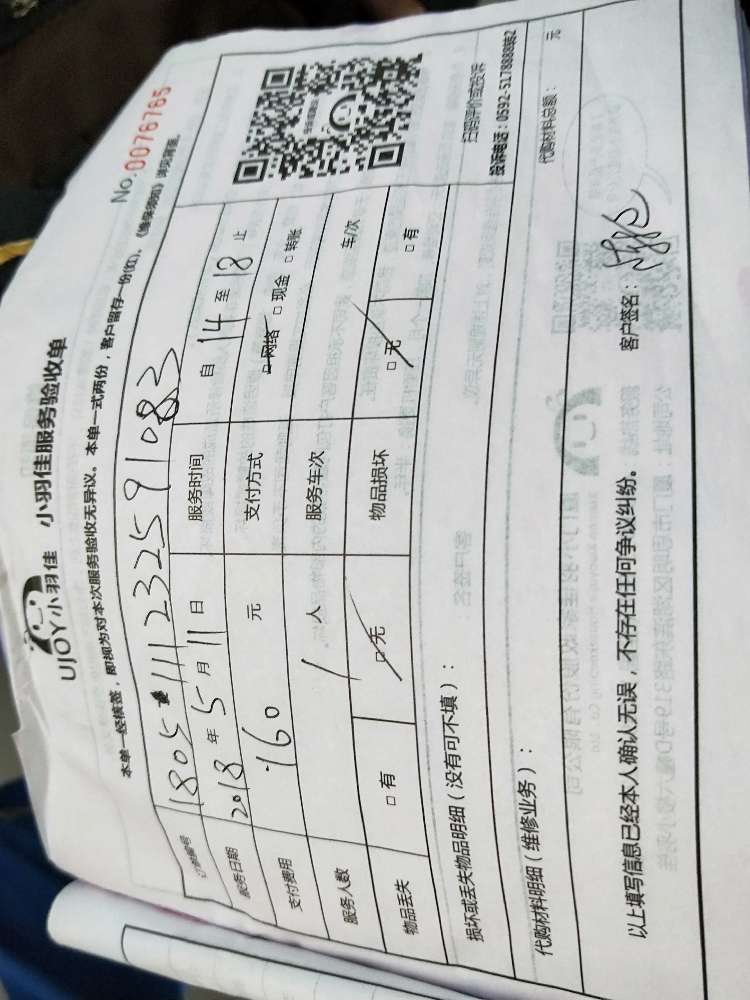 UJOY小羽佳 小羽佳服务验收单
No.0076765
本单一经核签，即视为对本次服务验收无异议。本单一式两份，客户留存一份(红)。《维保须知》请见背面。
订单编号 1805111232591083
服务日期 2018年5月11日 服务时间 自14至18止
支付费用 160元 支付方式 □网络 □现金 □转账
服务人数 1人 服务车次 车/次
物品丢失 □有 □无 物品损坏 □无 □有
扫码评价或投诉
投诉电话：0592-5178888转2
损坏或丢失物品明细（没有可不填）：
代购材料明细（维修业务）： 代购材料总额： 元
以上填写信息已经本人确认无误，不存在任何争议纠纷。 客户签名：